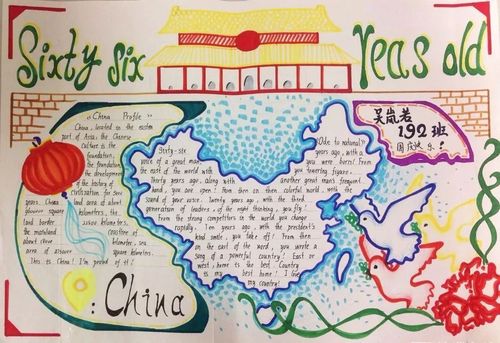 Sixty six Yeas old
"China Profile"
China, located in the eastern
part of Asia, the Chinese
Culture is the
foundation,
the foundation
the development
of the history
of civilization, for 5000
years, China land area of about
kilometers, the
land border
the mainland coastline of
about 18000 kilometers, sea
area of square kilometers.
This is China! I'm proud of it!
: China
Sixty-six
years of a great man,
the east of the world with
Thirty years ago, along with
land, you are open! Now then on then, colorful world, with the
sound of your voice. Twenty years ago, with the third
generation of leaders, of the eight thinking, you fly!
From the strong competitors in the world you change
rapidly. Ten years ago, with the president's
kind smile, you take off! From then
on the east of the world, you wrote a
song of a powerful country! East or
west, home is the best. Country
is my best home. I love
my country!
Ode to national!
years ago, with a
you were born! From
you towering figure.
another great man's frequent
吴岚若
192班
国庆快乐!